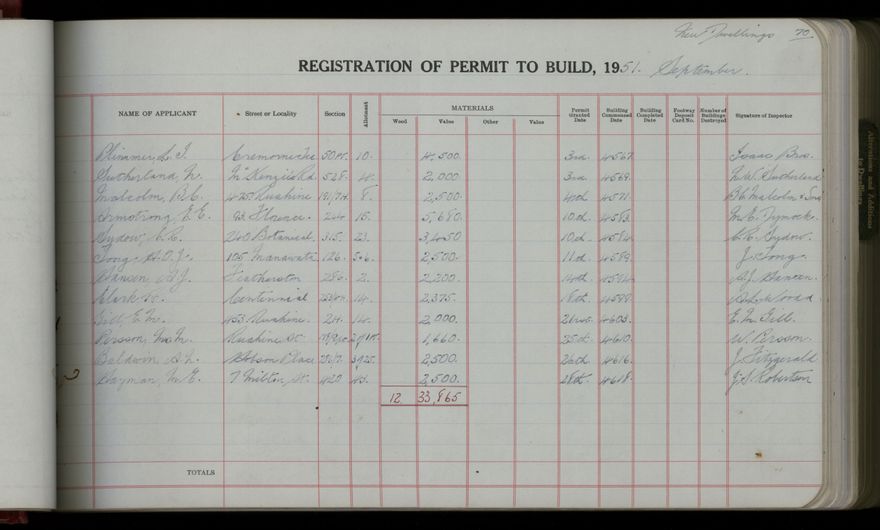 New Dwellings 70.
REGISTRATION OF PERMIT TO BUILD, 1951. September.
NAME OF APPLICANT Street or Locality Section Allotment MATERIALS Permit Granted Date Building Commenced Date Building Completed Date Footway Deposit Card No. Number of Buildings Destroyed Signature of Inspector
Wood Value Other Value
10. 4,500. 3rd. 4567. Isaac Bros.
Sutherland, W. McKenzie Rd. 528. 4. 2,000 3rd. 4569. Sutherland
Malcolm, B.C. 475 Ruahine 8. 2,500. 4th. 4571. B.C. Malcolm & Son
Armstrong, E.E. 93. Florence. 240 15. 5,680. 10th. 4583.
Sydow, C.R. 240 Botanical. 315. 23. 3,450 10th. 4584. C.R. Sydow.
Tong, A.O.J. 105 Manawatu 126. 5+6. 2,500. 11th. 4589. J. Tong.
Hansen, A.J. Featherston 283. 2. 2,200. 14th. 4594. A.J. Hansen.
Clark Centennial 14. 2,375. 18th. 4598.
Gill, E.M. 453. Ruahine. 24. 14. 2,000. 21st. 4603. E.M. Gill.
Persson, W. Ruahine St. 1,660. 25th. 4610. W. Persson.
Baldwin, A.L. Hobson Place 2,500. 26th. 4616. J. Fitzgerald
Hayman, M.E. 7 Milton St. 420 43. 2,500. 28th. 4618. J.S. Robertson
12. 33,865
TOTALS
Alterations and Additions
to Dwellings